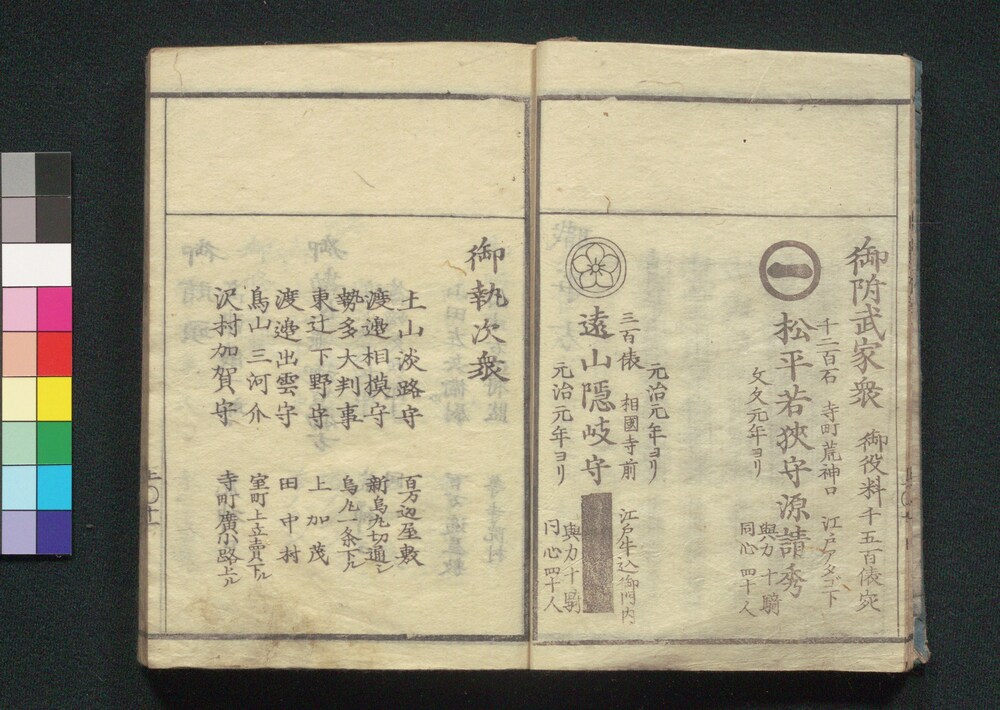 御附武家衆 御役料千五百俵宛
千二百石 寺町荒神口 江戸アタゴ下
松平若狭守源請秀
與力十騎
同心四十人
文久元年ヨリ
元治元年ヨリ
三百俵 相國寺前 江戸牛込御門内
遠山隠岐守
與力十騎
同心四十人
元治元年ヨリ
御執次衆
土山淡路守 百万辺屋敷
渡邉相摸守 新烏丸切通シ
勢多大判事 烏丸一条下ル
東辻下野守 上加茂
渡邉出雲守 田中村
鳥山三河介 室町上立賣下ル
沢村加賀守 寺町廣小路上ル